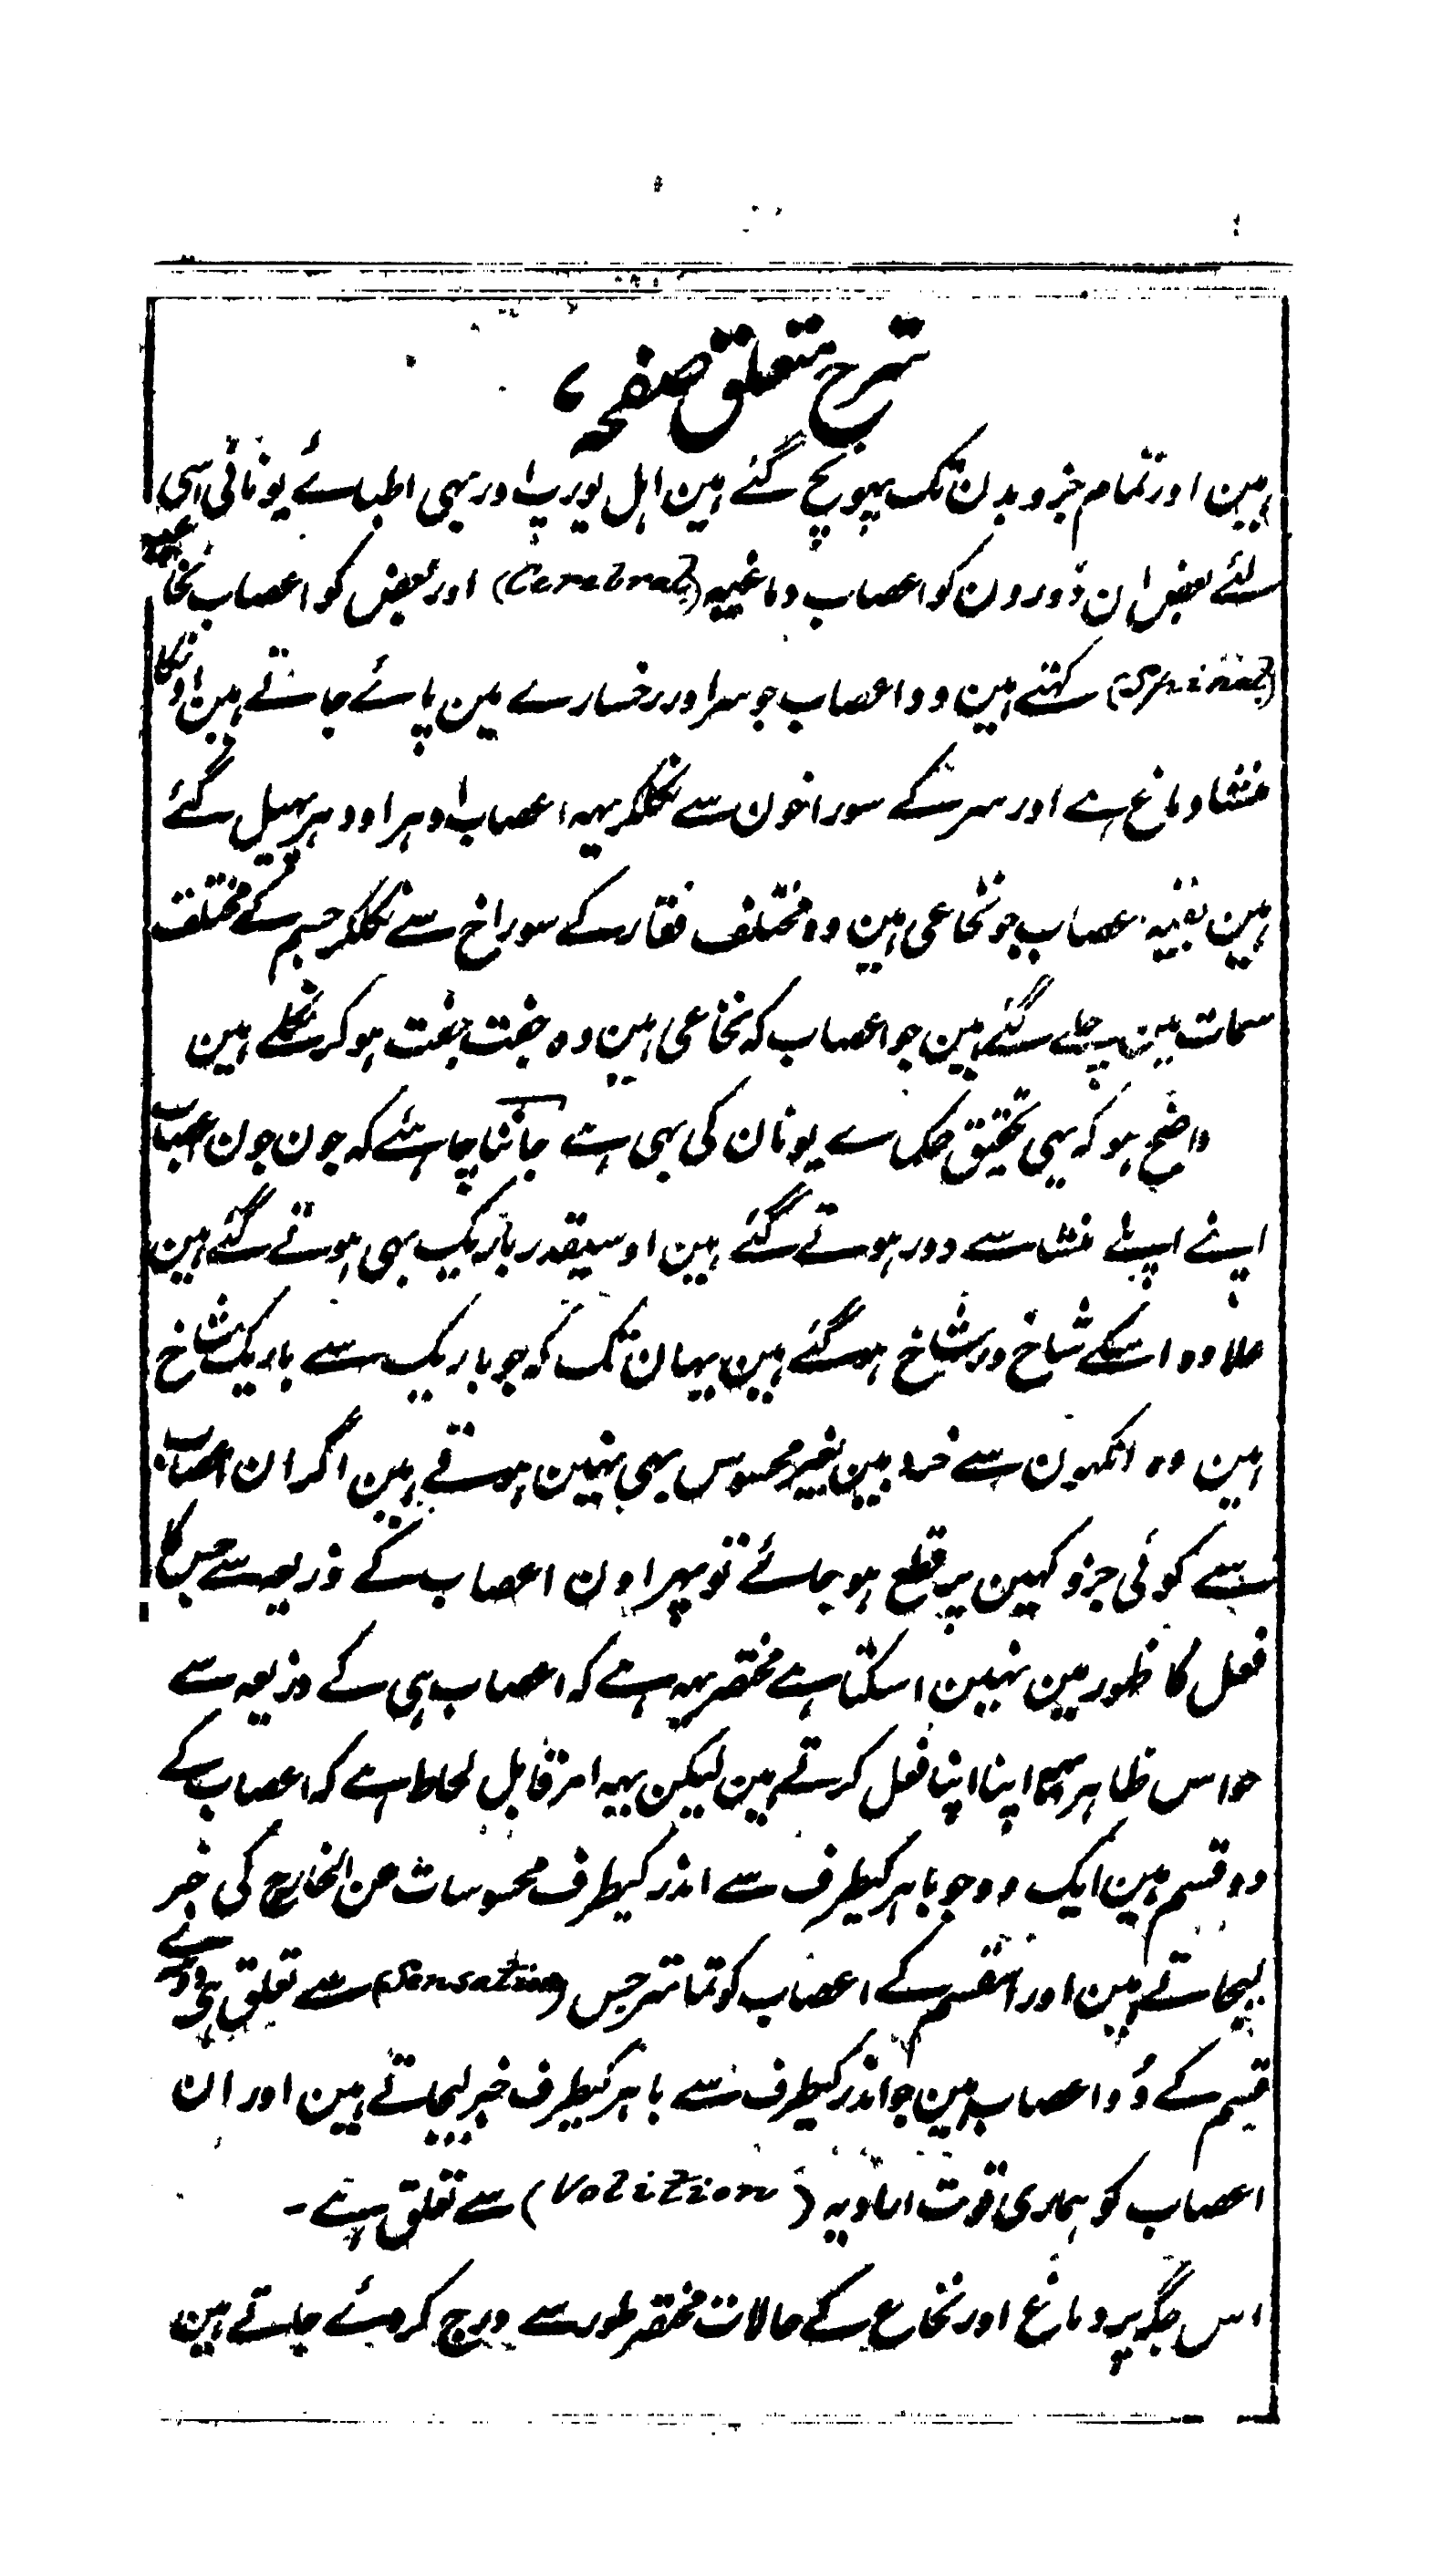 شرح متعلق صفحہ ۷
ہین اور تمام جزو بدن تک پہونچ گئے ہین اہل یورپ اور بہی اطبائے یونانی اسی
لئے بعض ان ڈورون کو اعصاب دماغیہ (Cerebral) اور بعض کو اعصاب نخاعیہ
(Spinal) کہتے ہین وہ اعصاب جو سر اور رخسارے مین پائے جاتے ہین اونکا
منشا دماغ ہے اور سر کے سوراخون سے نکلکر یہہ اعصاب ادہر اودہر پہیل گئے
ہین بقیہ اعصاب جو نخاعی ہین وہ مختلف فقار کے سوراخ سے نکلکر جسم کے مختلف
سمات مین چلے گئے ہین جو اعصاب کہ نخاعی ہین وہ جفت جفت ہو کر نکلے ہین
واضح ہو کہ یہی تحقیق حکماے یونان کی بہی ہے جاننا چاہئے کہ جون جون اعصاب
اپنے اپنے منشا سے دور ہوتے گئے ہین اوسیقدر باریک بہی ہوتے گئے ہین
علاوہ اسکے شاخ در شاخ ہو گئے ہین یہان تک کہ جو باریک سے باریک شاخ
ہین وہ انکہون سے خردبین بغیر محسوس بہی نہین ہوتے ہین اگر ان اعصاب
سے کوئی جزو کہین پر قطع ہو جائے تو پہر اون اعصاب کے ذریعہ سے حس کا
فعل کا ظہور مین نہین اسکتا ہے مختصر یہہ ہے کہ اعصاب ہی کے ذریعہ سے
حواس ظاہر اپنا اپنا فعل کرتے ہین لیکن یہہ امر قابل لحاظ ہے کہ اعصاب کے
دو قسم ہین ایک وہ جو باہر کیطرف سے اندر کیطرف محسوسات عن الخارج کی خبر
لیجاتے ہین اور اسقسم کے اعصاب کو تمامتر حس (Sensation) سے تعلق ہی دوسرے
قسم کے وہ اعصاب ہین جو اندر کیطرف سے باہر کیطرف خبر لیجاتے ہین اور ان
اعصاب کو ہماری قوت ارادیہ (Volition) سے تعلق ہے ۔
اس جگہ پر دماغ اور نخاع کے حالات مختصر طور سے درج کردئے جاتے ہین